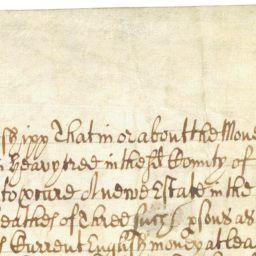 shipp That in or about the Mone
n Heavytree in the sd County of
to p̱cure A newe Estate in the
eathes of Three such p̱sons as
s Current English money at lea